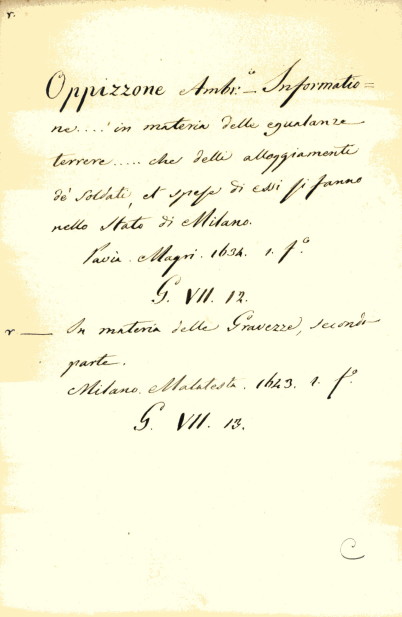 r.
Oppizzone Ambr.º — Informatio=
ne....' in materia delle egualanze
terrere..... che delli alloggiamenti
de' Soldati, et spese di essi si fanno
nello Stato di Milano.
Pavia. Magri. 1634. 1. fº.
G. VII. 12.
r — In materia delle Gravezze, seconda
parte.
Milano. Malatesta. 1643. 1. fº.
G. VII. 13.
C